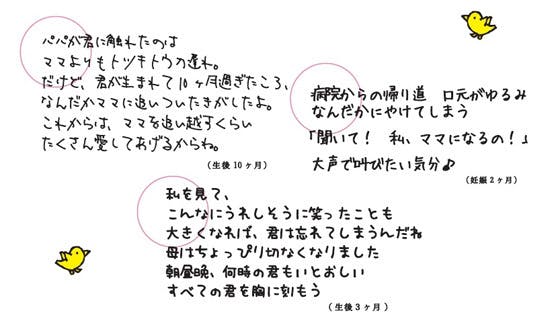 パパが君に触れたのは
ママよりもトツキトウカ遅れ。
だけど、君が生まれて10ヶ月過ぎたころ、
なんだかママに追いついたきがしたよ。
これからは、ママを追い越すくらい
たくさん愛してあげるからね。
（生後10ヶ月）
病院からの帰り道　口元がゆるみ
なんだかにやけてしまう
「聞いて！　私、ママになるの！」
大声で叫びたい気分♪
（妊娠2ヶ月）
私を見て、
こんなにうれしそうに笑ったことも
大きくなれば、君は忘れてしまうんだね
母はちょっぴり切なくなりました
朝昼晩、何時の君もいとおしい
すべての君を胸に刻もう
（生後3ヶ月）